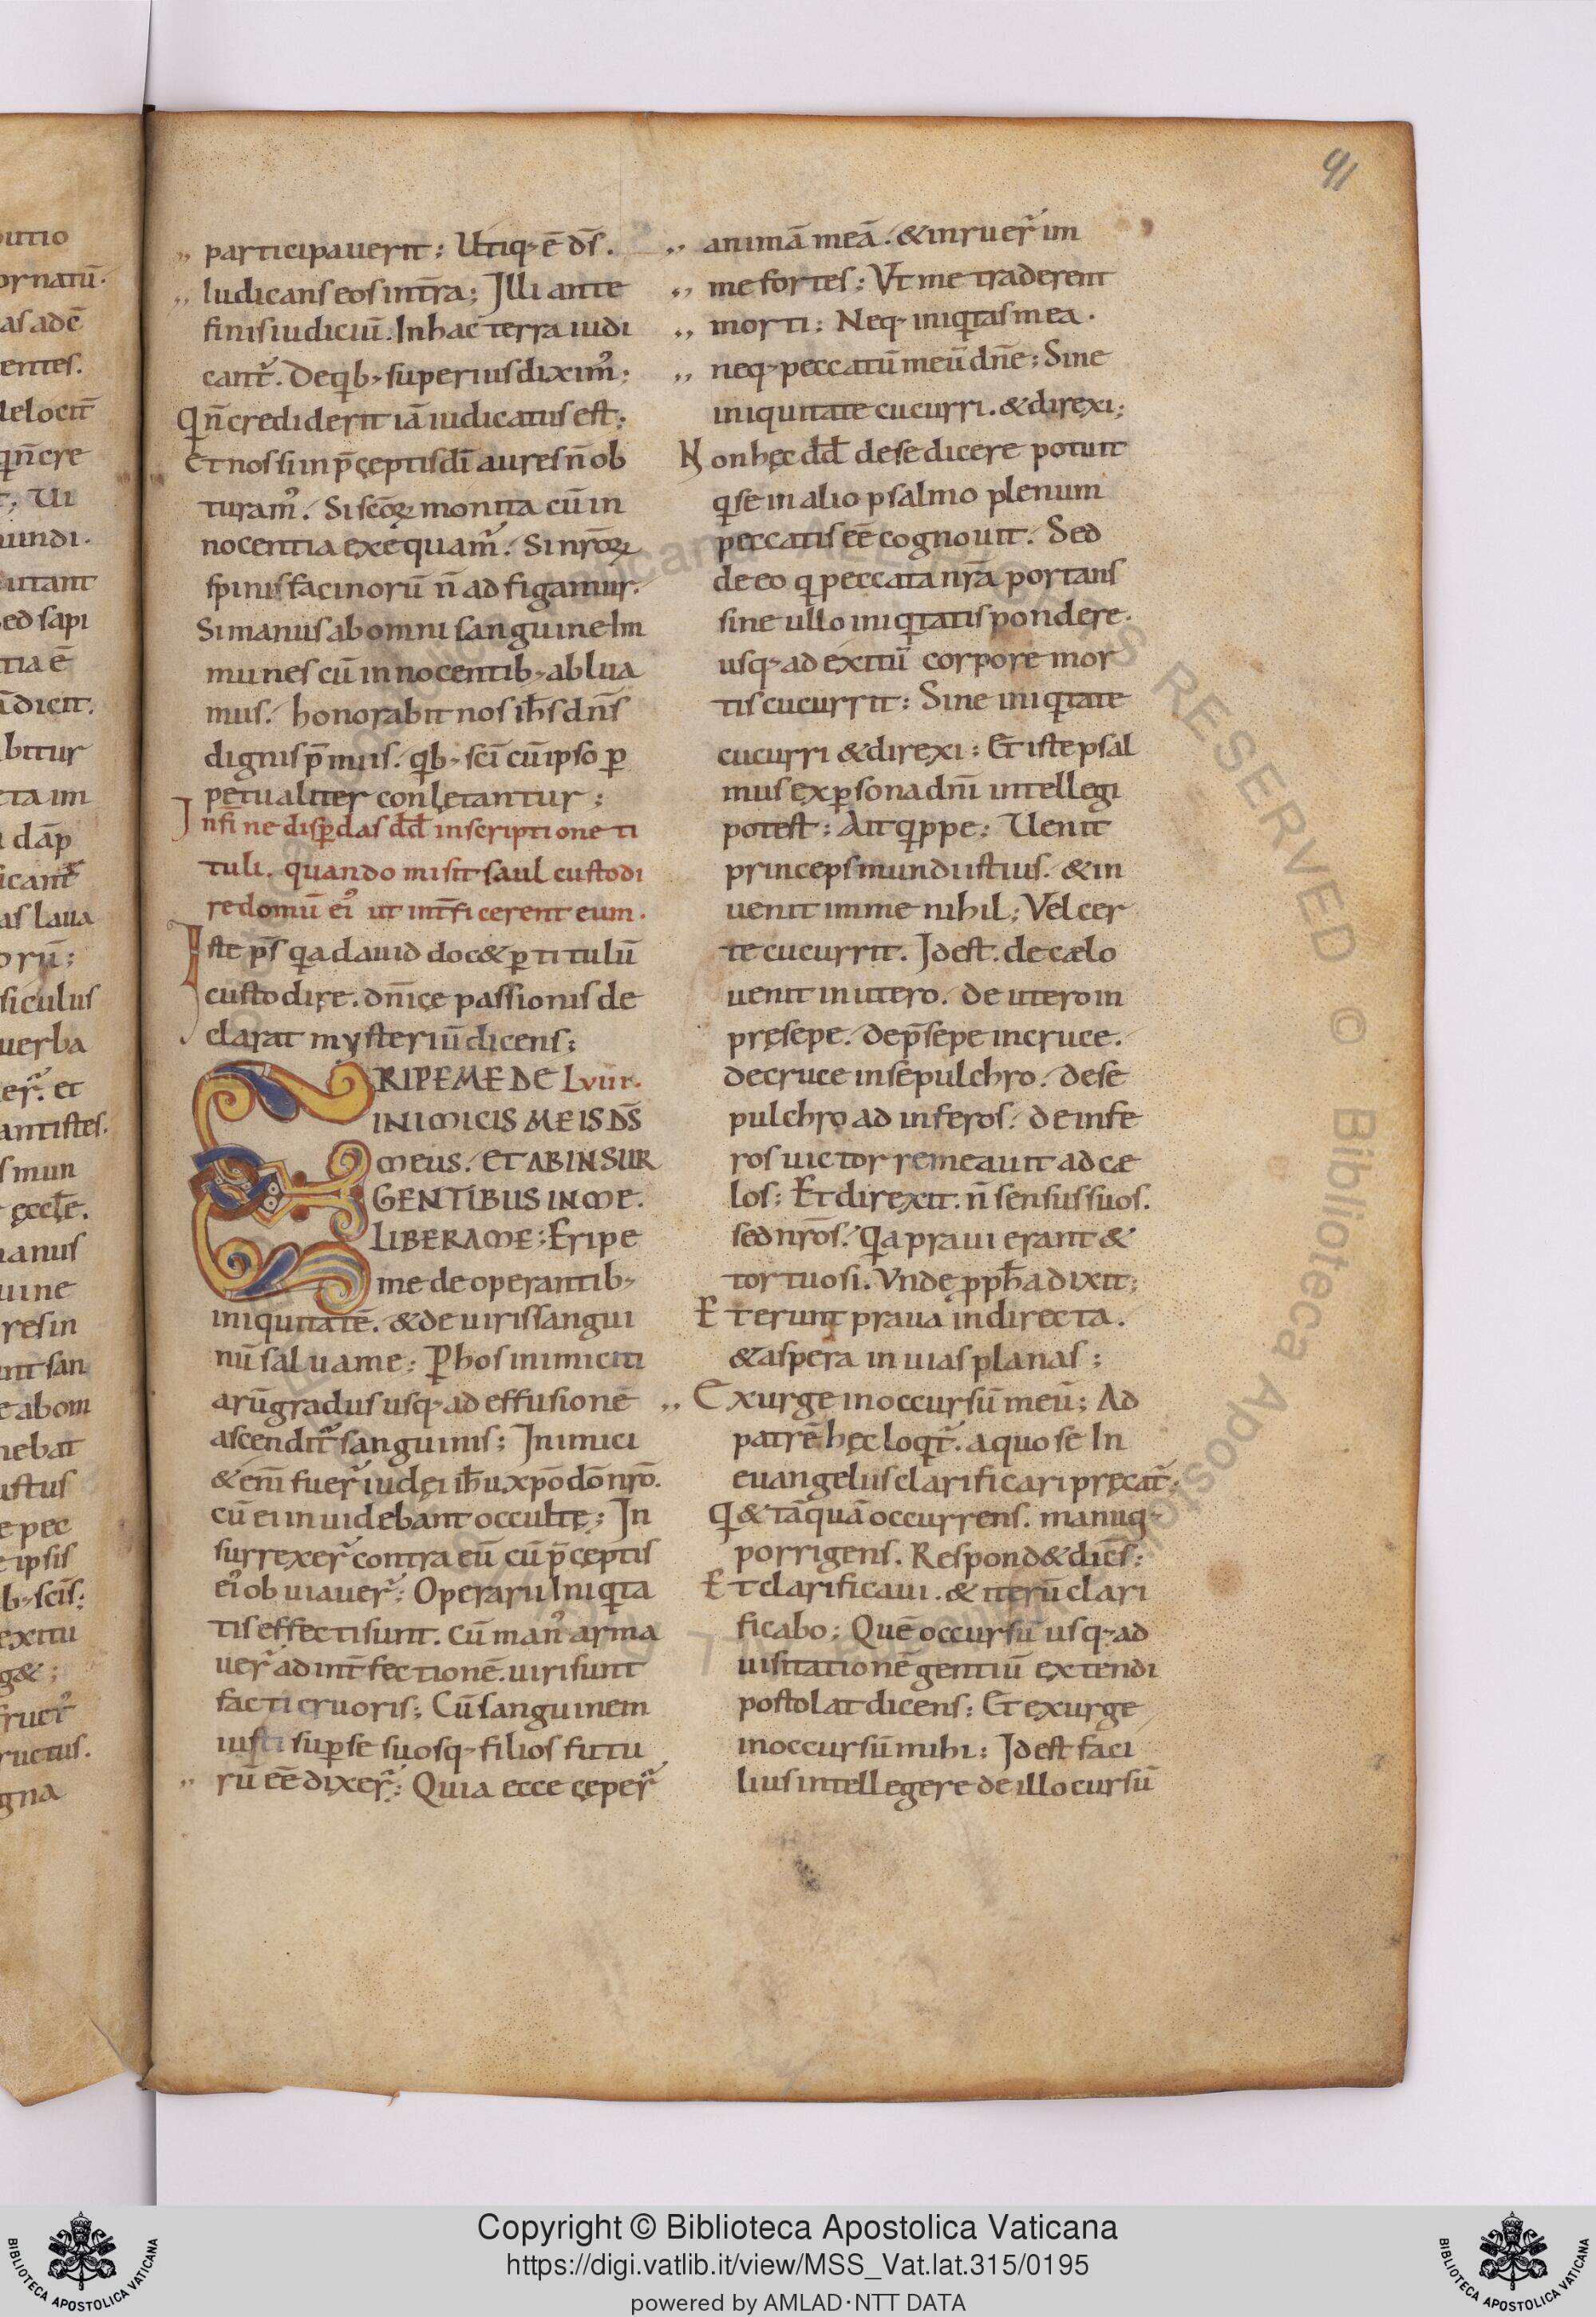 91
participauerit: Utiq; ē d̄s.
Iudicans eos in t̄ra; Illi ante
finis iudiciū. In hac terra iudi
cant᷑. De qb; superius dixim᷒;
Qn̄ crediderit iā iudicatus est;
Et nos si in p̄ceptis d̄i aures n̄ ob
turam᷒. Si sc̄oꝝ monita cū in
nocentia exequam᷑. Si nr̄oꝝ
spinis facinorū n̄ adfigamur.
Si manus ab omni sanguine Im
munes cū innocentib; ablua
mus. honorabit nos ih̄s dn̄s
dignis p̄miis. qb; sc̄i cū ipso ꝑ
petualiter conlętantur;
In fine disꝑdas dd̄ inscriptione ti
tuli. quando misit saul custodi
re domū ei᷒ ut int̄ficerent eum.
Iste ps̄ qa dauid doc& ꝑ titulū
custodire. dn̄icę passionis de
clarat mysteriū dicens;
ERIPE ME DE Lviii.
INIMICIS MEIS D̄S
MEUS. ET AB INSUR
GENTIBUS IN ME.
LIBERA ME: Eripe
me de operantib;
iniquitatē. & de uiris sangui
nū salua me; P̱ hos inimiciti
arū gradus usq; ad effusionē
ascendit᷑ sanguinis; Inimici
& eni̅ fuer᷑ iudęi ih̄u xp̄o dō nr̄o.
cū ei inuidebant occultę; In
surrexer᷑ contra eū cū p̄ceptis
ei᷒ obuiauer᷑; Operarii Iniqta
tis effecti sunt. cū man᷒ arma
uer᷑ ad int̄fectionē. uiri sunt
facti cruoris; Cū sanguinem
iusti suꝑ se suosq; filios futu
rū eē dixer᷑; Quia ecce cęper᷑
animā meā. & inruer᷑ im
me fortes; Vt me traderent
morti; Neq; iniqtas mea.
neq; peccatū meū dn̄e; Sine
iniquitate cucurri. & direxi;
Non hęc dd̄ de se dicere potuit
q se in alio psalmo plenum
peccatis eē cognouit. Sed
de eo q peccata nr̄a portans
sine ullo iniqtatis pondere.
usq; ad exitū corpore mor
tis cucurrit; Sine iniqtate
cucurri & direxi; Et iste psal
mus ex ꝑsona dn̄i intellegi
potest; Ait qppe; Uenit
princeps mundi istius. & in
uenit im me nihil; Vel cer
te cucurrit. Idest. de cælo
uenit in utero. de utero in
pręsepe. de p̄sepe in cruce.
de cruce in sepulchro. de se
pulchro ad inferos. de infe
ros uictor remeauit ad cæ
los; Et direxit. n̄ sensus suos.
sed nr̄os. Qa praui erant &
tortuosi. Vnde ꝓph̄a dixit;
Et erunt praua in directa.
& aspera in uias planas;
Exurge in occursū meū; Ad
patrē hęc loqt᷑. a quo se In
euangeliis clarificari pręcat᷑;
Q & tāquā occurrens. manuq;
porrigens. Respond& dicēs;
Et clarificaui. & iterū clari
ficabo; Quē occursū usq; ad
uisitationē gentiū extendi
postolat dicens; Et exurge
in occursū mihi; Idest faci
lius intellegere de illo cursū
Copyright © Biblioteca Apostolica Vaticana
https://digi.vatlib.it/view/MSS_Vat.lat.315/0195
powered by AMLAD·NTT DATA
BIBLIOTECA APOSTOLICA VATICANA
BIBLIOTECA APOSTOLICA VATICANA